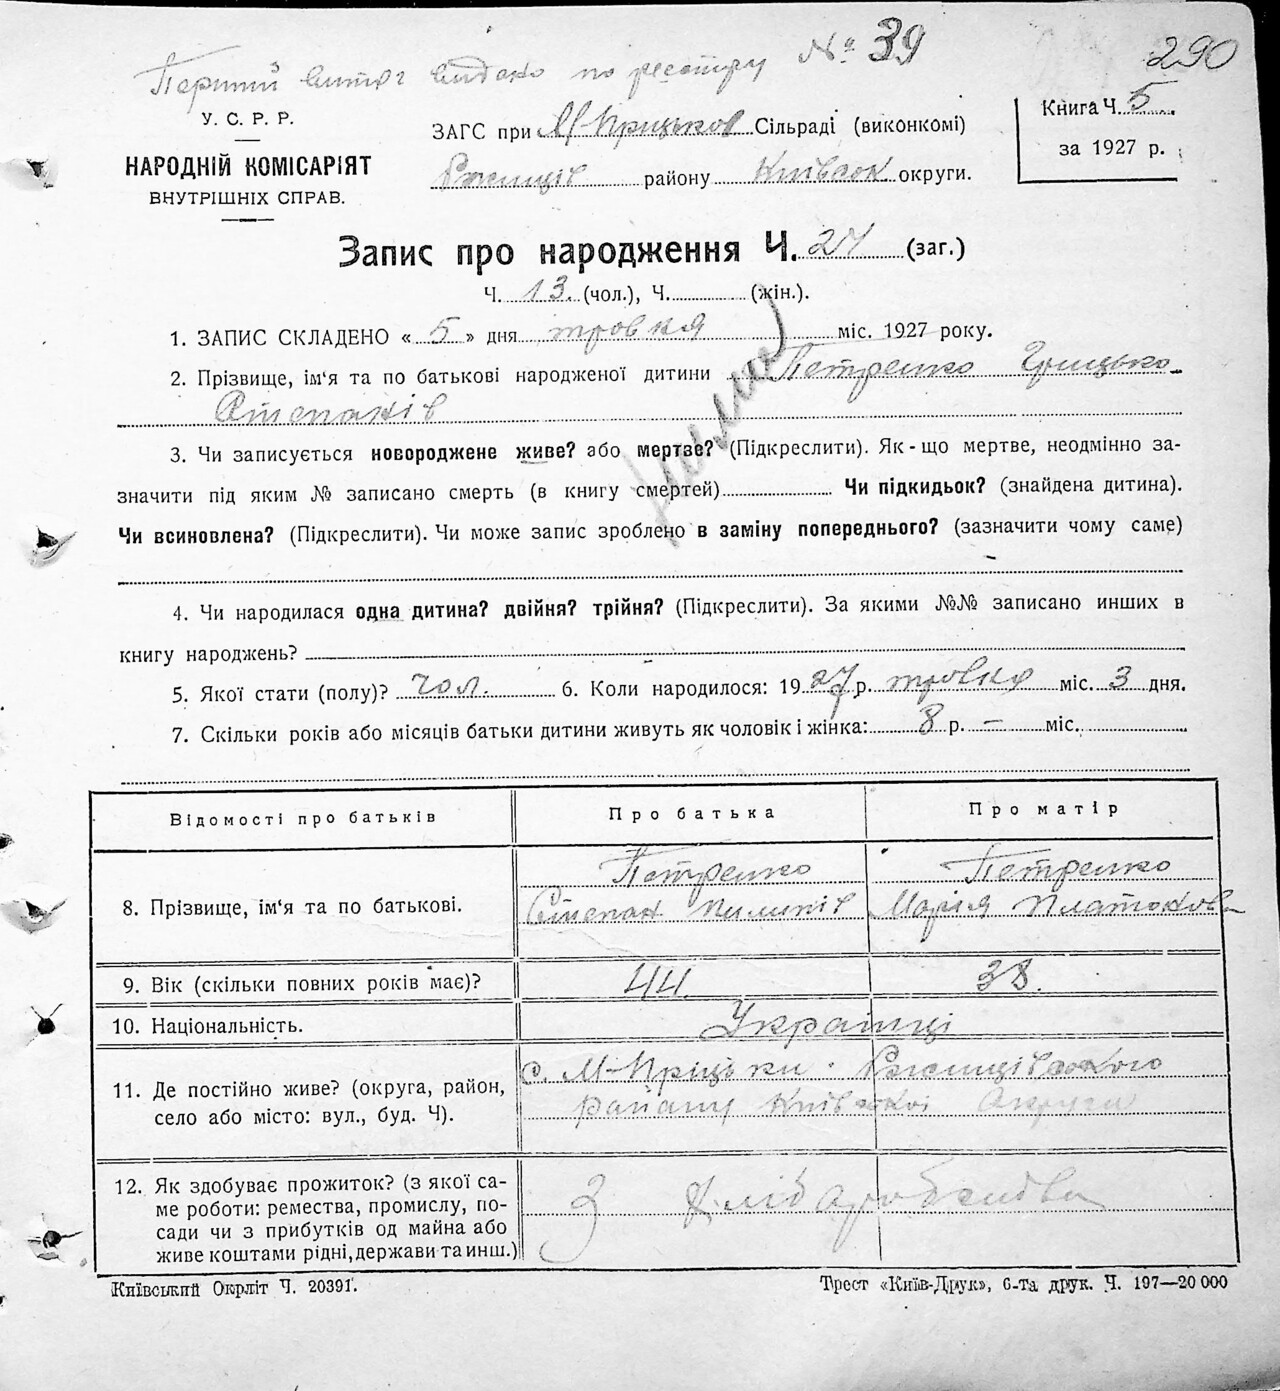 290
Перший витяг видано по реєстру № 39
У. С. Р. Р.
НАРОДНІЙ КОМІСАРІЯТ
ВНУТРІШНІХ СПРАВ.
ЗАГС при М-Прицьков Сільраді (виконкомі)
Ржищів району Київськ округи.
Книга Ч. 5
за 1927 р.
Запис про народження Ч. 27 (заг.)
Ч. 13. (чол.), Ч. (жін.).
1. ЗАПИС СКЛАДЕНО « 5 » дня травня міс. 1927 року.
2. Прізвище, ім'я та по батькові народженої дитини Петренко Грицько
Степанів
3. Чи записується новороджене живе? або мертве? (Підкреслити). Як-що мертве, неодмінно за-
значити під яким № записано смерть (в книгу смертей) Чи підкидьок? (знайдена дитина).
Чи всиновлена? (Підкреслити). Чи може запис зроблено в заміну попереднього? (зазначити чому саме)
4. Чи народилася одна дитина? двійня? трійня? (Підкреслити). За якими №№ записано инших в
книгу народжень?
5. Якої стати (полу)? чол. 6. Коли народилося: 1927 р. травня міс. 3 дня.
7. Скільки років або місяців батьки дитини живуть як чоловік і жінка: 8 р. — міс.
Відомості про батьків Про батька Про матір
8. Прізвище, ім'я та по батькові. Петренко Степан Пилипів Петренко Марія Платонова
9. Вік (скільки повних років має)? 44 38.
10. Національність. Українці
11. Де постійно живе? (округа, район, с. М-Пріцьки. Ржищівського
село або місто: вул., буд. Ч). району Київської Округи
12. Як здобуває прожиток? (з якої са-
ме роботи: ремества, промислу, по- З Хліборобства
сади чи з прибутків од майна або
живе коштами рідні, держави та инш.)
Київський Окрліт Ч. 20391. Трест «Київ-Друк», 6-та друк. Ч. 197—20 000